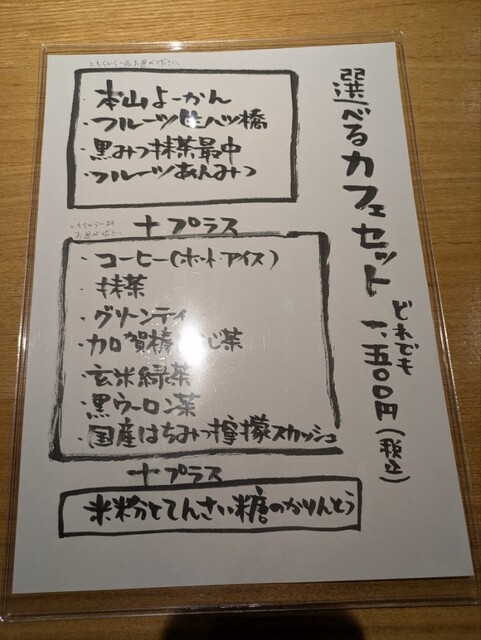 選べるカフェセット
どれでも
一、五〇〇円(税込)
こちらから一品お選びください
・本山よーかん
・フルーツ生八ツ橋
・黒みつ抹茶最中
・フルーツあんみつ
+プラス
こちらから一杯
お選びください
・コーヒー(ホット・アイス)
・抹茶
・グリーンティ
・加賀棒ほうじ茶
・玄米緑茶
・黒ウーロン茶
・国産はちみつ檸檬スカッシュ
+プラス
米粉とてんさい糖のかりんとう